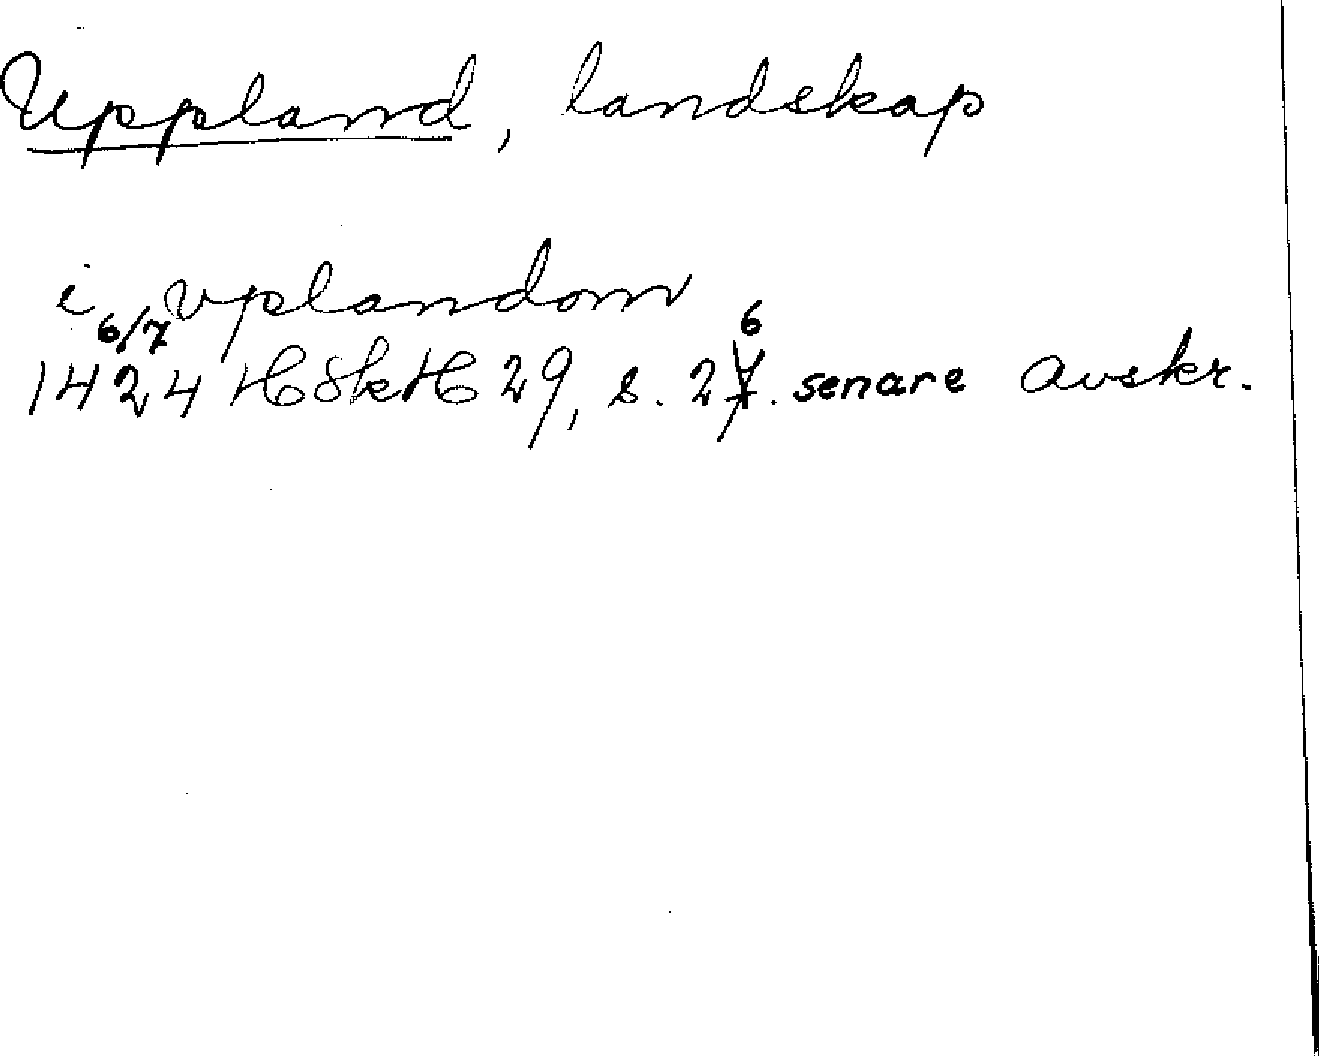 Uppland, landskap
i vplandom
6/7 6
1424 HSkH 29, s. 27. senare avskr.